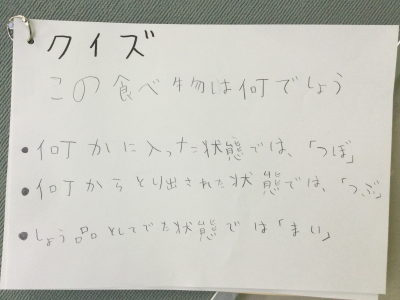 クイズ
この食べ物は何でしょう
●何かに入った状態では、「つぼ」
●何からとり出された状態では、「つぶ」
●しょう品としてでた状態では「まい」